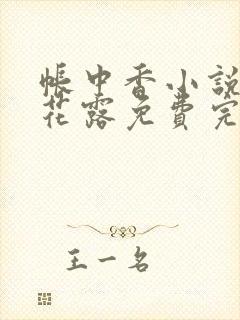 帳中香小說
花露免費完
王一名